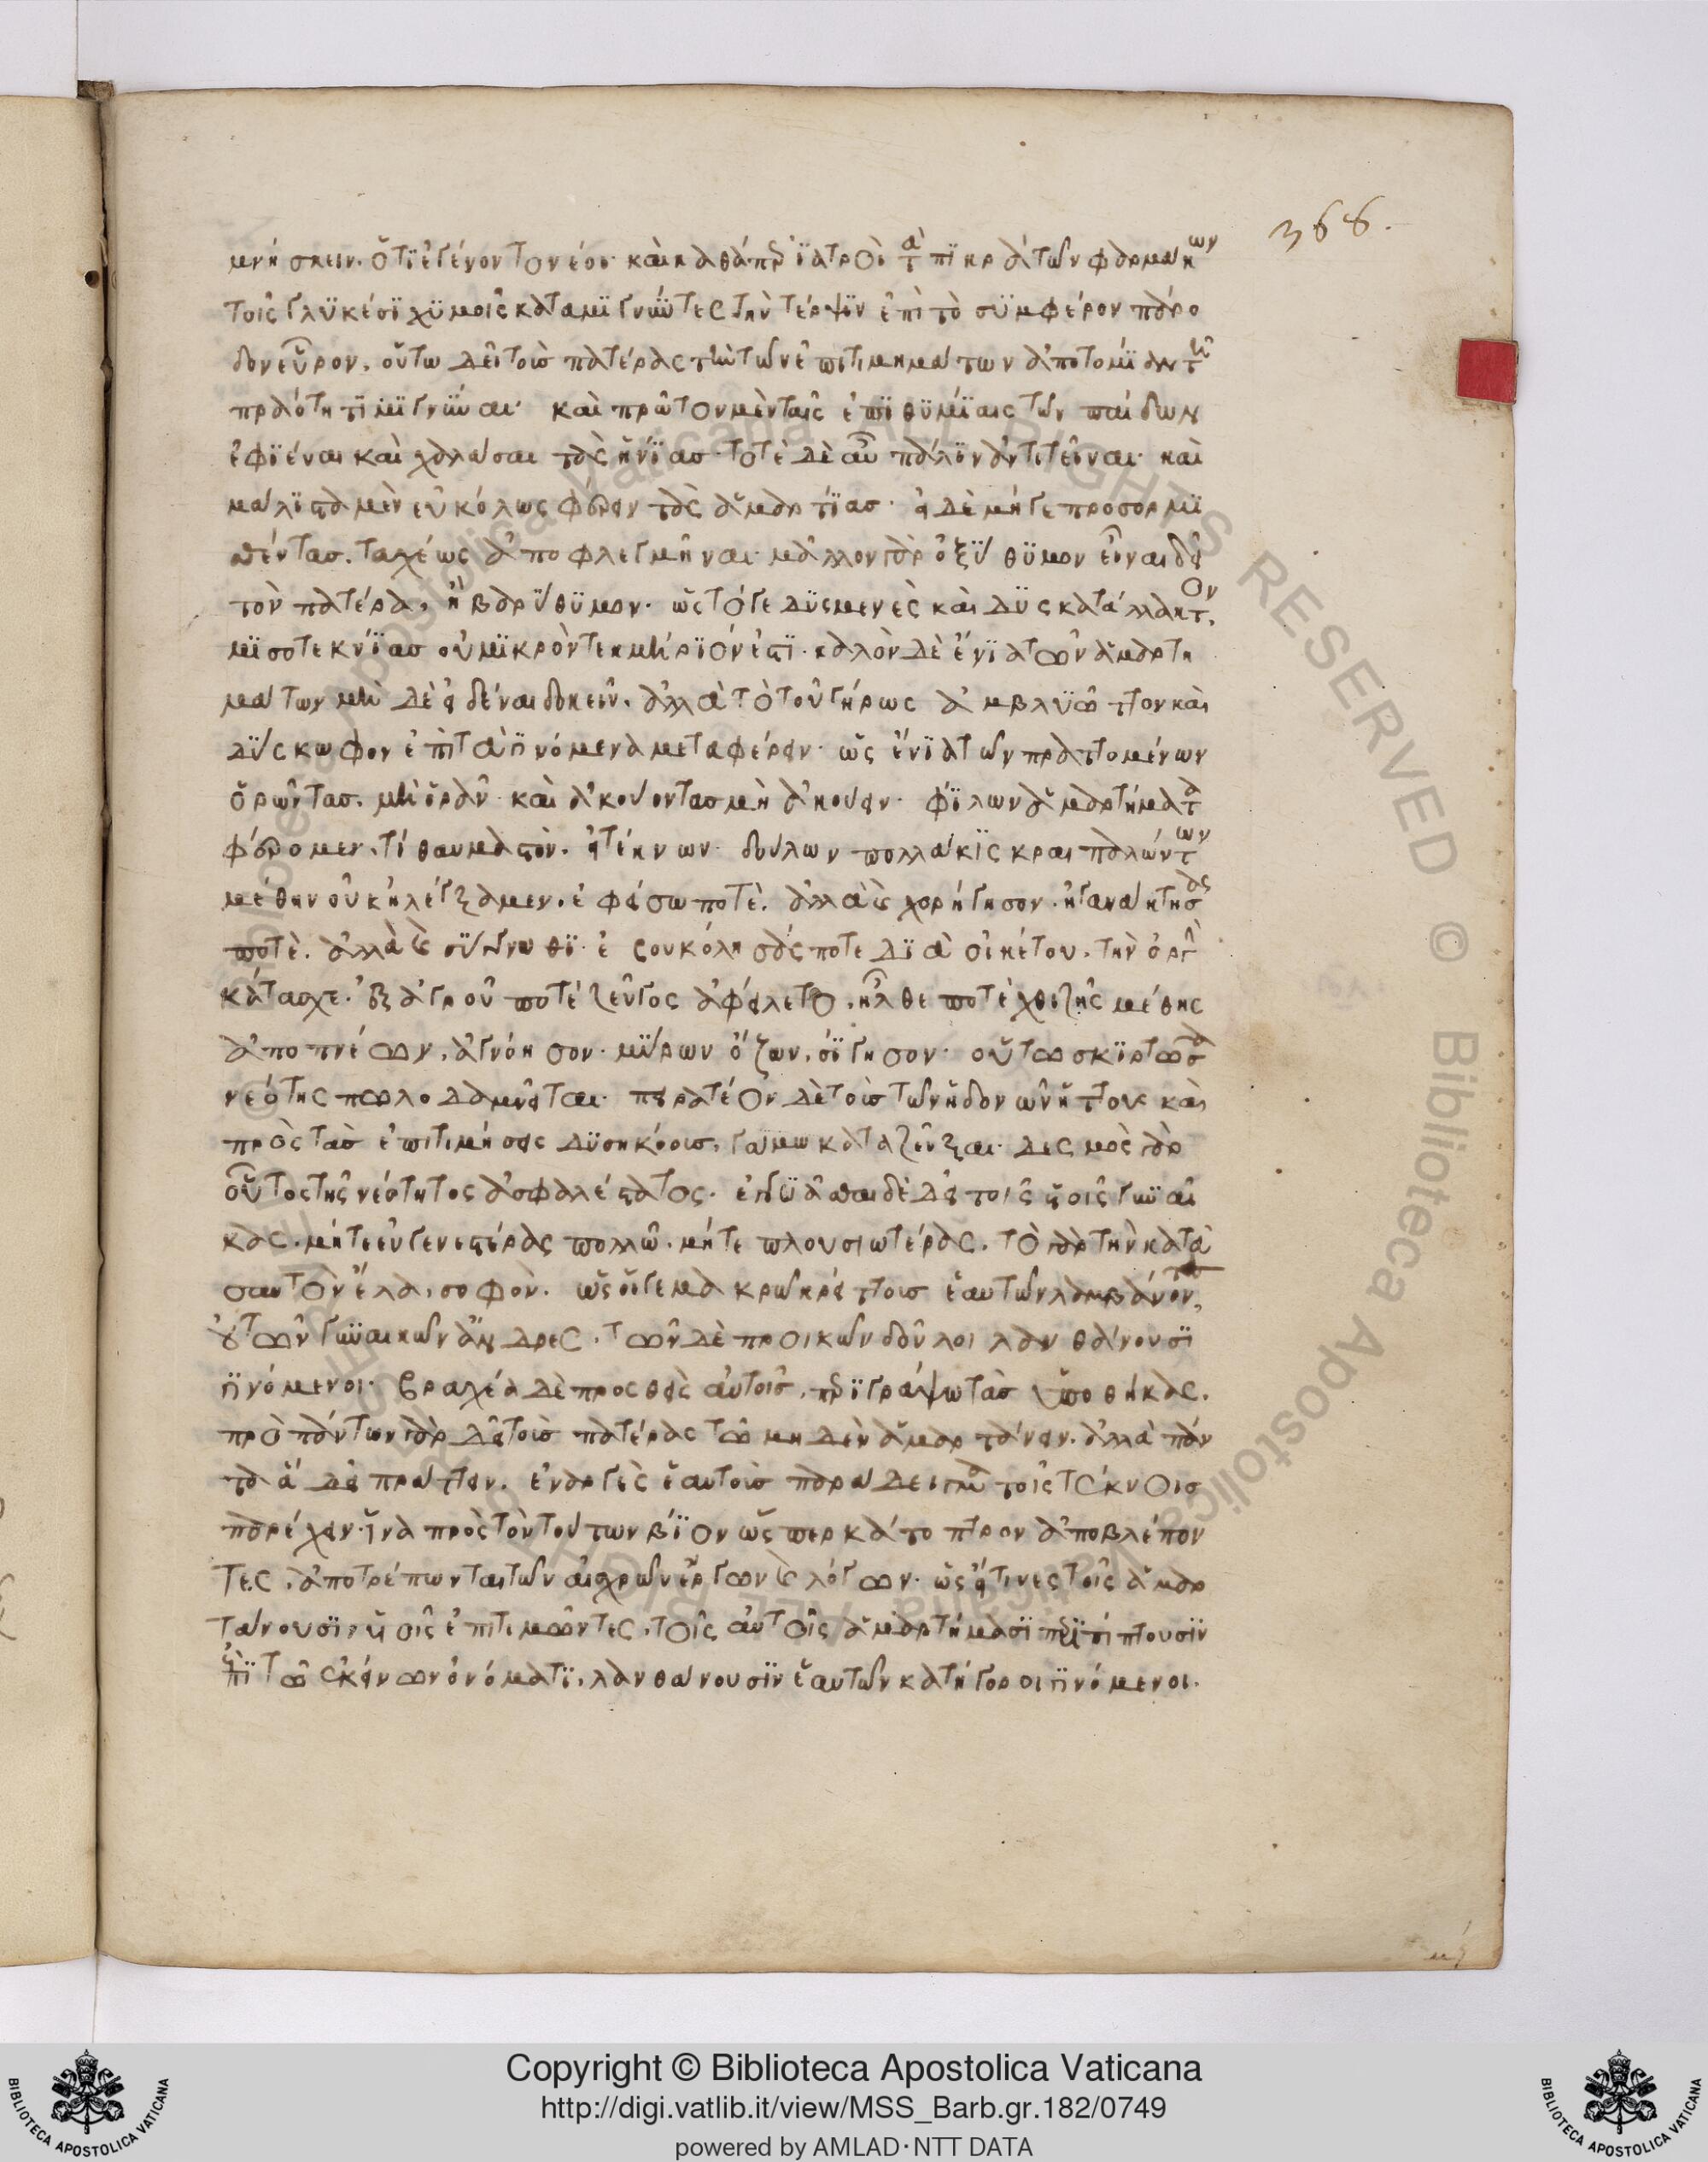 368.
μνήσκειν. ὅτι ἐγένοντο νέοι· καὶ καθάπερ ἰατροὶ τὰ πικρὰ τῶν φαρμάκων
τοῖς γλυκέσι χυμοῖς καταμιγνύντες τὴν τέρψιν ἐπὶ τὸ συμφέρον πάρο
δον εὗρον, οὕτω δεῖ τοὺς πατέρας τὴν τῶν ἐπιτιμημάτων ἀποτομίαν τῆ
πραότητι μιγνύναι· καὶ πρῶτον μὲν ταῖς ἐπιθυμίαις τῶν παίδων
ἐφιέναι καὶ χαλάσαι τὰς ἡνίας· τοτὲ δὲ αὖ πάλιν ἀντιτεῖναι· καὶ
μάλιστα μὲν εὐκόλως φέρειν τὰς ἁμαρτίας· εἰ δὲ μή γε προσορμι
σθέντας. ταχέως ἀποφλεγμῆναι· μᾶλλον γὰρ ὀξύθυμον εἶναι δεῖ
τὸν πατέρα, ἢ βαρύθυμον· ὡς τό γε δυσμενὲς καὶ δυσκατάλλακτον,
μισοτεκνίας οὐ μικρὸν τεκμήριόν ἐστι· καλὸν δὲ ἔνια τῶν ἁμαρτη
μάτων μὴ δὲ εἰδέναι δοκεῖν. ἀλλὰ τὸ τοῦ γήρως ἀμβλυῶττον καὶ
δύσκωφον ἐπὶ τὰ γινόμενα μεταφέρειν· ὡς ἔνια τῶν πραττομένων
ὁρῶντας. μὴ ὁρᾶν· καὶ ἀκούοντας μὴ ἀκούειν· φίλων ἁμαρτήματα
φέρομεν. τί θαυμαστὸν. εἰ τέκνων· δούλων πολλάκις κραιπαλώντων
μέθην οὐκ ἠλέγξαμεν. ἐφείσω ποτὲ. ἀλλὰ καὶ χορήγησον. ἠγανάκτησας
ποτὲ. ἀλλὰ καὶ σύγγνωθι· ἐβουκόλησάς ποτε διὰ οἰκέτου. τὴν ὀργὴν
κάτασχε. ἐξ ἀγροῦ ποτὲ ζεῦγος ἀφείλετο, ἦλθε ποτὲ χθιζῆς μέθης
ἀποπνέων, ἀγνόησον· μύρων ὄζων, σίγησον· οὕτω σκιρτῶσα
νεότης πωλοδαμνεῖται· πειρατέον δὲ τοὺς τῶν ἡδονῶν ἥττους καὶ
πρὸς τὰς ἐπιτιμήσεις δυσηκόους, γάμω καταζεῦξαι· δεσμὸς γὰρ
οὗτος τῆς νεότητος ἀσφαλέστατος· ἐγγυᾶσθαι δὲ δεῖ τοῖς υἱοῖς γυναῖ
κας. μήτε εὐγενεστέρας πολλῶ. μήτε πλουσιωτέρας. τὸ γὰρ τὴν κατὰ
σαυτὸν ἔλα, σοφὸν. ὡς οἵ γε μακρῶ κρείττους ἑαυτῶν λαμβάνοντες,
οὐ τῶν γυναικῶν ἄνδρες. τῶν δὲ προικῶν δοῦλοι λανθάνουσι
γινόμενοι· βραχέα δὲ προσθεὶς αὐτοῖς, περιγράψω τὰς ὑποθήκας.
πρὸ πάντων γὰρ δεῖ τοὺς πατέρας τῶ μηδὲν ἁμαρτάνειν. ἀλλὰ πάν
τα ἃ δεῖ πράττειν. ἐναργὲς ἑαυτοὺς παράδειγμα τοῖς τέκνοις
παρέχειν· ἵνα πρὸς τὸν τούτων βίον ὥσπερ κάτοπτρον ἀποβλέπον
τες, ἀποτρέπωνται τῶν αἰσχρῶν ἔργων καὶ λόγων· ὡς εἵτινες τοῖς ἁμαρ
τάνουσιν υἱοῖς ἐπιτιμῶντες, τοῖς αὐτοῖς ἁμαρτήμασι περιπίπτουσιν
ἐπὶ τῶ ἐκείνων ὀνόματι, λανθάνουσιν ἑαυτῶν κατήγοροι γινόμενοι.
Copyright © Biblioteca Apostolica Vaticana
http://digi.vatlib.it/view/MSS_Barb.gr.182/0749
powered by AMLAD·NTT DATA